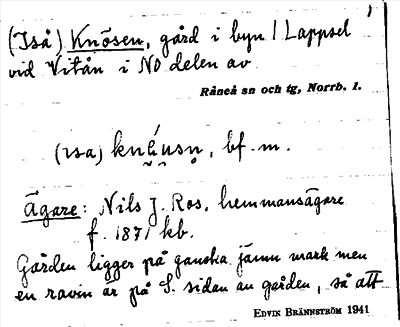 (Iså) Knösen, gård i byn Lappsel
vid Vitån i NO delen av
Råneå sn och tg, Norrb. l.
(ısa) knéusn, bf. m.
Ägare: Nils J. Ros, hemmansägare
f. 1871 kb.
Gården ligger på ganska jämn mark men
en ravin är på S. sidan av gården, så att
EDVIN BRÄNNSTRÖM 1941